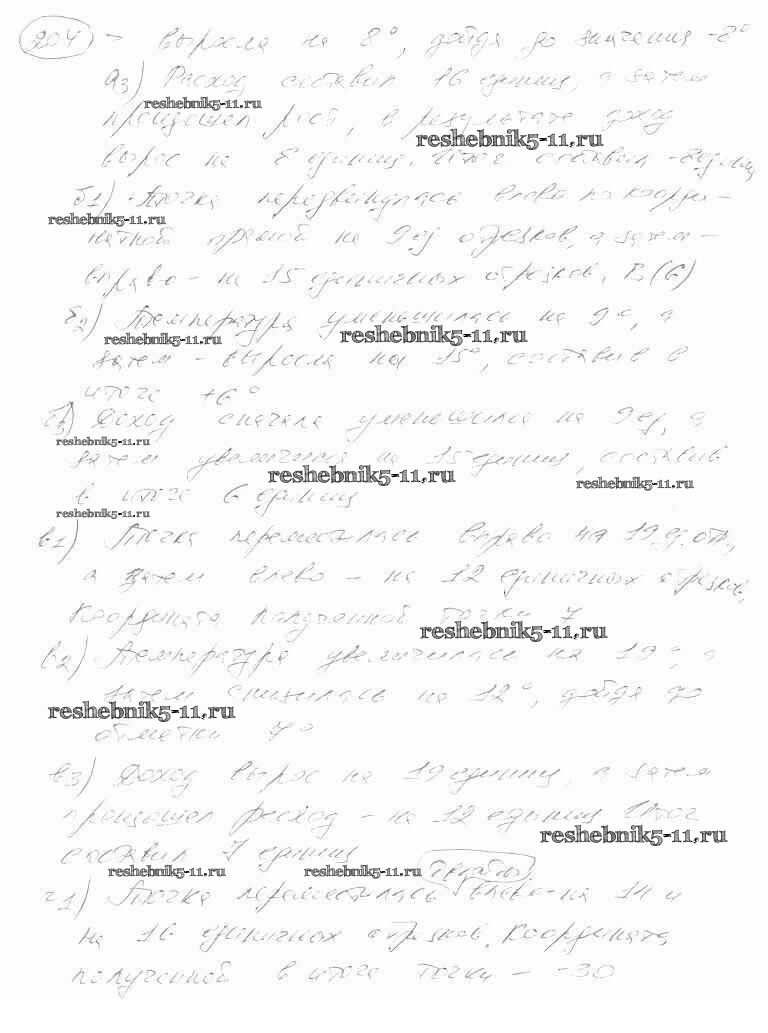 204 – выросла на 8°, дойдя до значения -8°
а3) Расход составил 16 единиц, а затем
reshebnik5-11.ru
произошел рост, в результате доход
reshebnik5-11.ru
вырос на 8 единиц. Итог составил -8 единиц
б1) Точка передвинулась влево по коорди-
reshebnik5-11.ru
натной прямой на 9 ед отрезков, а затем –
вправо – на 15 единичных отрезков. B(6)
б2) Температура уменьшилась на 9°, а
reshebnik5-11.ru reshebnik5-11.ru
затем – выросла на 15°, составив в
итоге +6°
б3) Доход сначала уменьшился на 9 ед, а
reshebnik5-11.ru
затем увеличился на 15 единиц, составив
reshebnik5-11.ru reshebnik5-11.ru
в итоге 6 единиц
reshebnik5-11.ru
в1) Точка переместилась вправо на 19 ед. отр.,
а затем влево – на 12 единичных отрезков,
Координата полученной точки 7
reshebnik5-11.ru
в2) Температура увеличилась на 19°, а
затем снизилась на 12°, дойдя до
reshebnik5-11.ru
отметки 7°
в3) Доход вырос на 19 единиц, а затем
произошел расход – на 12 единиц Итог
reshebnik5-11.ru
составил 7 единиц
reshebnik5-11.ru reshebnik5-11.ru
г1) Точка переместилась влево на 14 и
на 16 единичных отрезков. Координата
полученной в итоге точки – -30